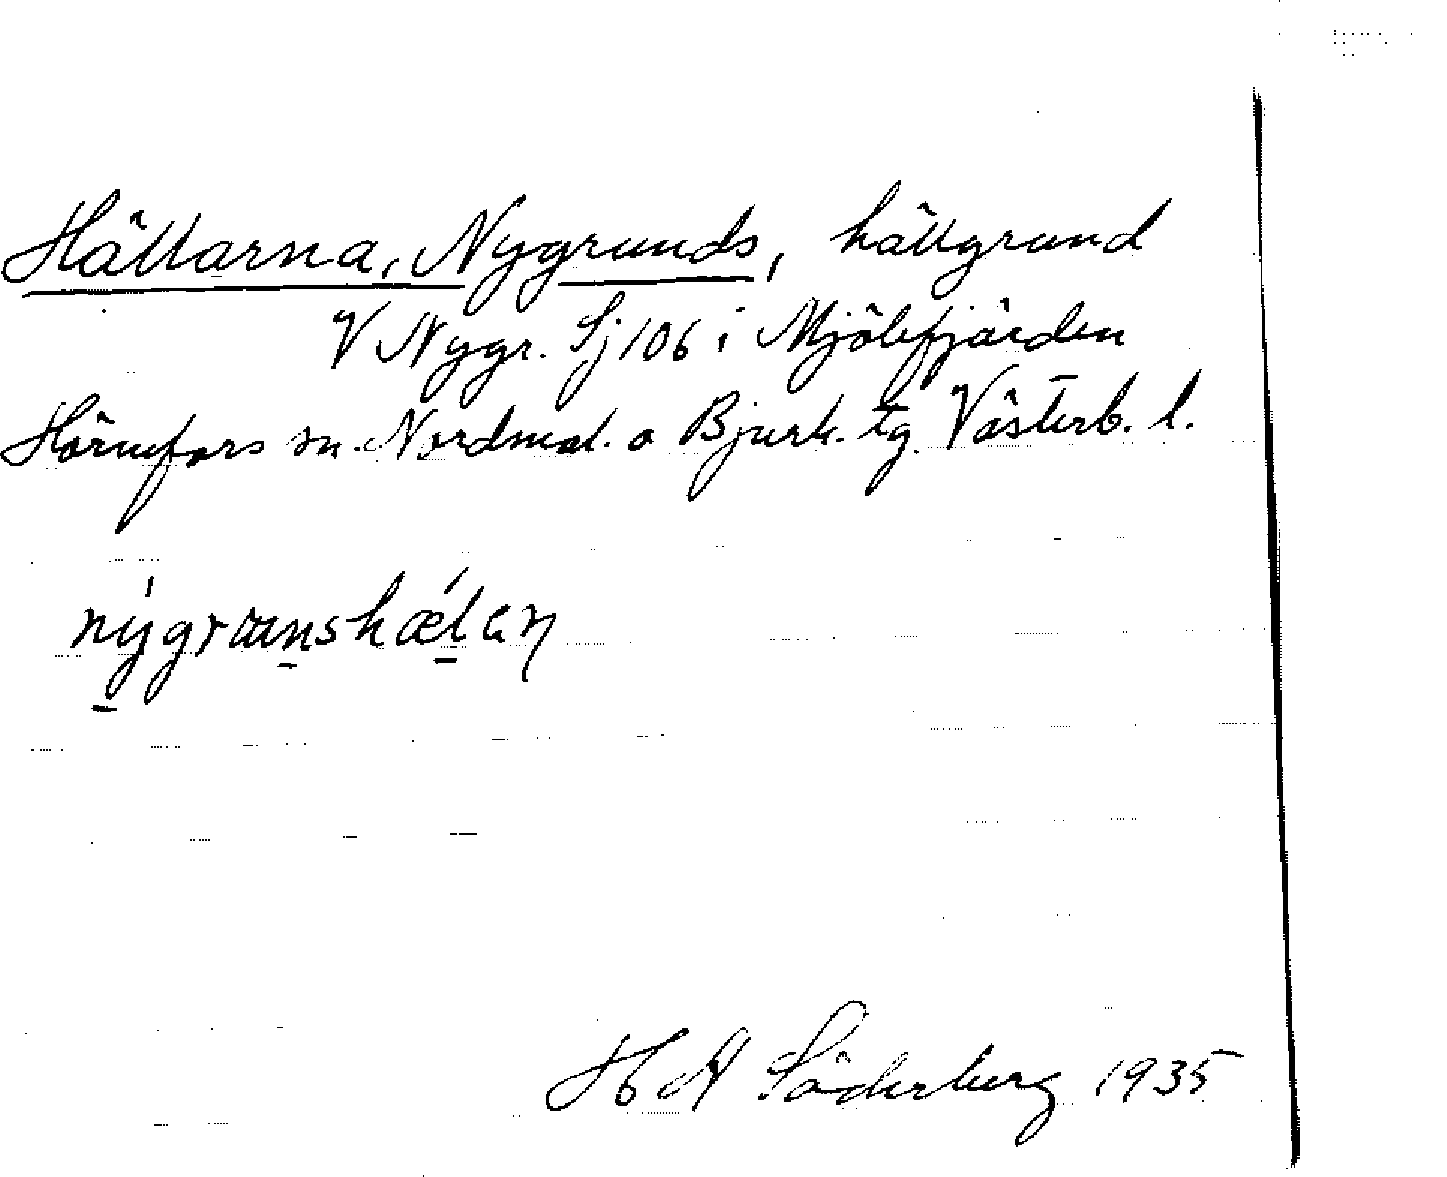 Hällarna, Nygrunds, hällgrund
V Nygr. Sj 106 i Mjölefjärden
Hörnefors sn. Nordmal. o Bjurh. tg. Västerb. l.
H A Söderberg 1935